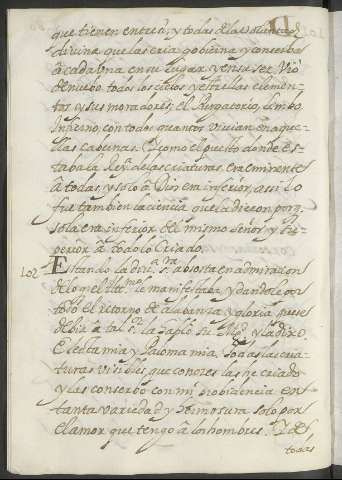 que tienen entre si, y todas de la voluntad
diuina que las cria gobierna y conserba
a cada una en su lugar y en su ser. Vio
de nuebo todos los cielos y estrellas elemen-
tos y sus moradores; el Purgatorio, Limbo
Infierno, con todos quantos viuian en aque-
llas cabernas. Y como el puesto donde es-
taba la Reyna de las criaturas era eminente
a todas, y solo a Dios era inferior, assi lo
fue tambien la ciencia que la dieron porq.
sola era inferior del mismo Señor y su-
perior a todo lo Criado.
102 Estando la diu.ª s.ª absorta en admiracion
de lo q el Altt.mo le manifestaba y dandole por
todo el retorno de alabanza y gloria que se
debia a tal s.r la hablo su Mg.d y la dixo.
Electa mia y Paloma mia todas las cria-
turas visibles que conoces las he criado
y las conserbo con mi probidencia en
tanta variedad y hermosura solo por
el amor que tengo a los hombres. Y de
todas